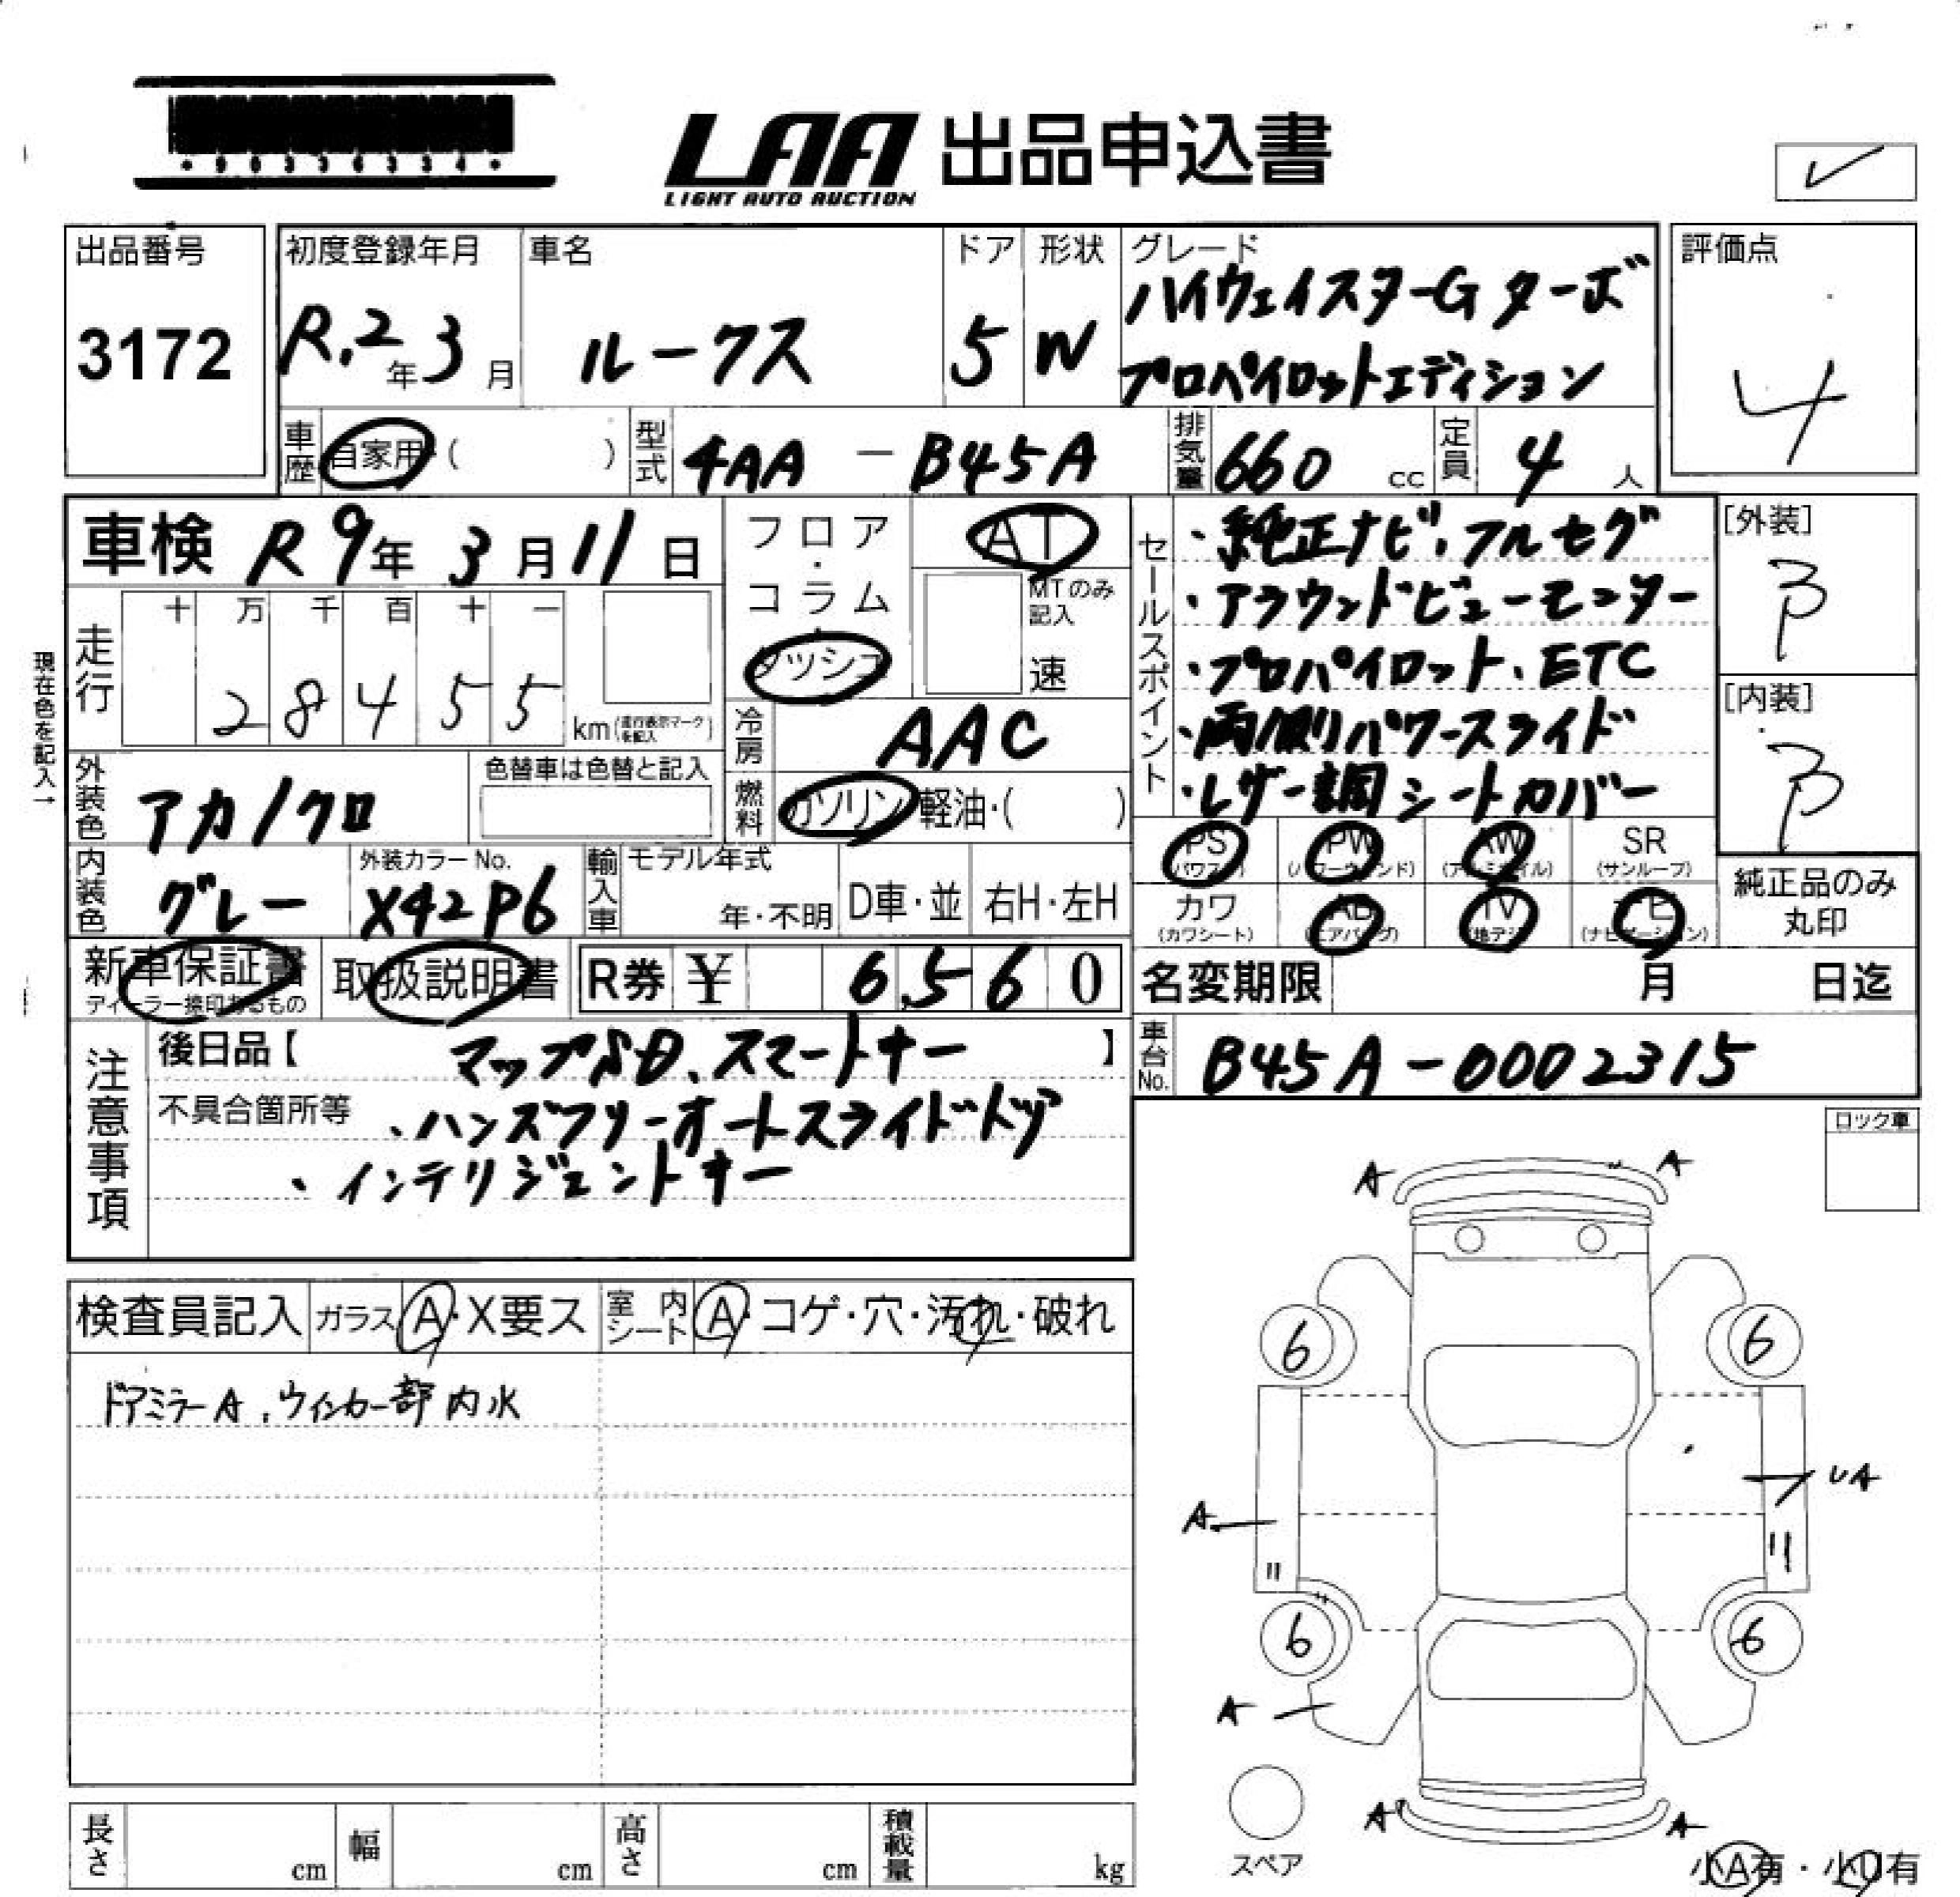 ・90336334・
LAA 出品申込書
LIGHT AUTO AUCTION
出品番号
3172
初度登録年月
R.2年3月
車名
ルークス
ドア
5
形状
W
グレード
ハイウェイスターGターボ
プロパイロットエディション
評価点
4
車歴 自家用・( )
型式 4AA - B45A
排気量 660 cc
定員 4人
車検 R9年3月11日
フロア・コラム・ダッシュ
AT
MTのみ記入
速
現在色を記入→
走行 十万千百十一
28455
km(走行表示マークを記入)
冷房 AAC
外装色 アカ/クロ
色替車は色替と記入
燃料 ガソリン・軽油・( )
内装色 グレー
外装カラーNo.
X42P6
輸入車 モデル年式
年・不明 D車・並 右H・左H
セールスポイント
・純正ナビ、フルセグ
・アラウンドビューモニター
・プロパイロット、ETC
・両側パワースライド
・レザー調シートカバー
[外装]
B
[内装]
B
PS (パワステ) PW (パワーウィンド) AW (アルミホイル) SR (サンルーフ)
カワ (カワシート) AB (エアバッグ) TV (地デジ) ナビ (ナビゲーション)
純正品のみ丸印
新車保証書
ディーラー捺印あるもの
取扱説明書
R券 ¥ 6,560
名変期限 月 日迄
車台No. B45A-0002315
注意事項
後日品【 マップSD、スマートキー 】
不具合箇所等 、ハンズフリーオートスライドドア
、インテリジェントキー
ロック車
検査員記入 ガラス A・X要ス 室内シート A・コゲ・穴・汚れ・破れ
ドアミラーA、ウィンカー部内水
A A
6 6
UA
A
6 6
A
A A
スペア
小A有・小U有
長さ cm 幅 cm 高さ cm 積載量 kg